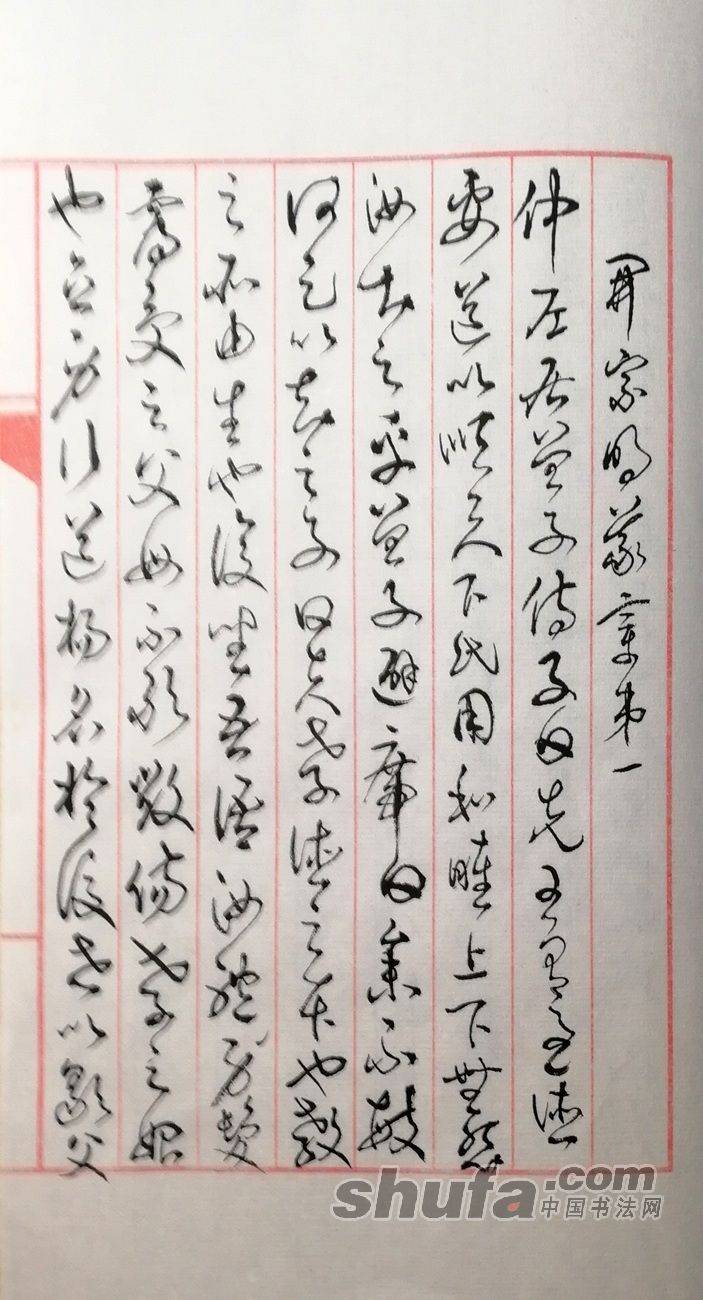 開宗明義章第一
仲尼居曾子侍子曰先王有至德
要道以順天下民用和睦上下無怨
汝知之乎曾子避席曰參不敏
何足以知之子曰夫孝德之本也教
之所由生也復坐吾語汝體身髮
膚受之父母不敢毀傷孝之始
也立身行道揚名於後世以顯父
shufa.com
中国书法网